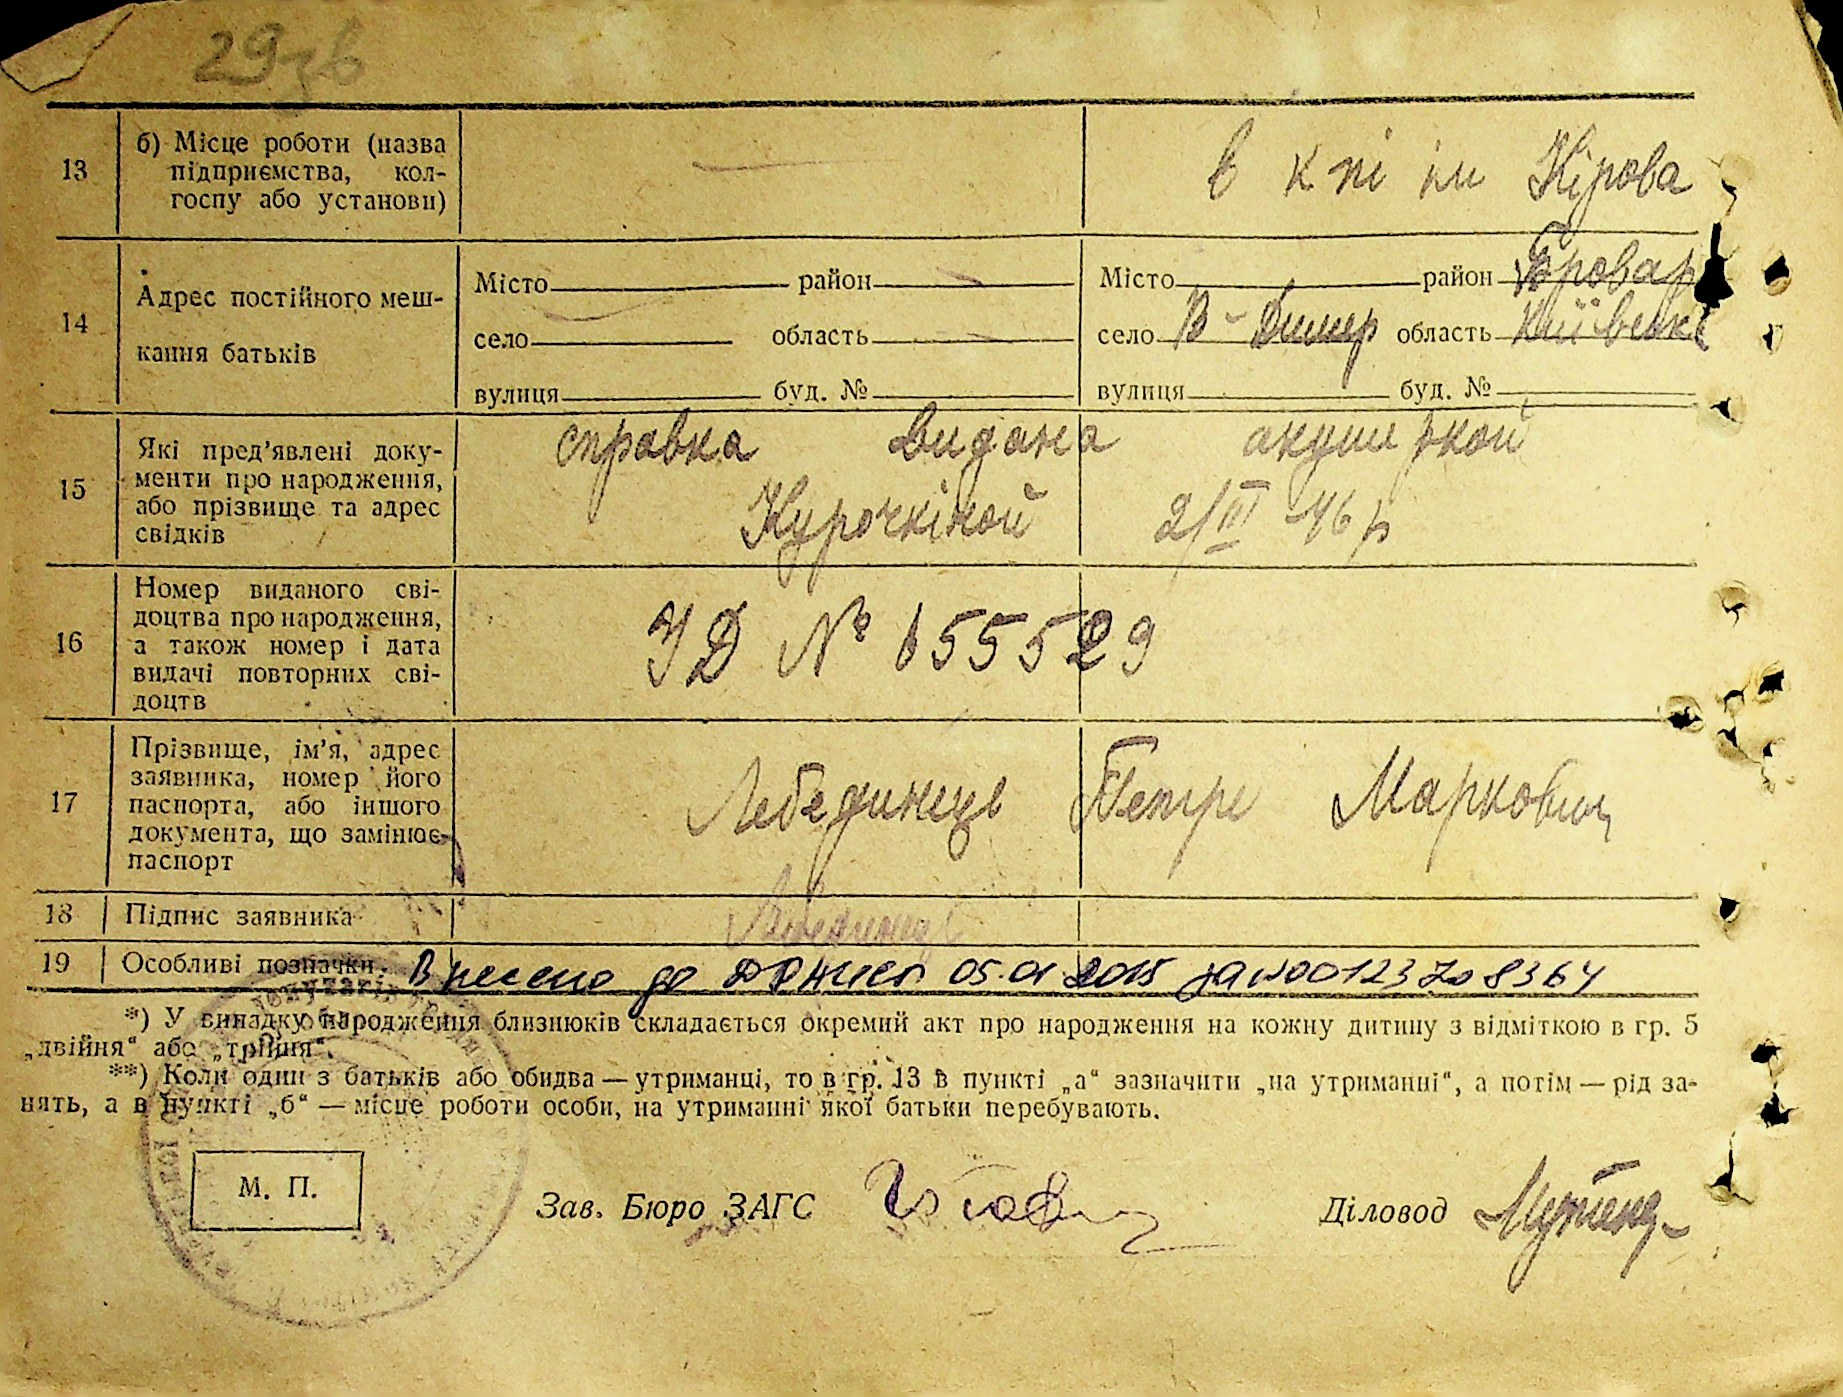 29зв
13
б) Місце роботи (назва
підприємства, кол-
госпу або установи)
в к пі ім Кірова
14
Адрес постійного меш-
кання батьків
Місто район
село область
вулиця буд. №
Місто район Бровар
село В-Димер область Київська
вулиця буд. №
15
Які пред’явлені доку-
менти про народження,
або прізвище та адрес
свідків
справка видана акушеркой
Курочкіной 2/III 46 р
16
Номер виданого сві-
доцтва про народження,
а також номер і дата
видачі повторних сві-
доцтв
УД № 655529
17
Прізвище, ім’я, адрес
заявника, номер його
паспорта, або іншого
документа, що замінює
паспорт
Лебединець Петро Маркович
18
Підпис заявника
Лебединець
19
Особливі позначки.
Внесено до 05.01 2015 за №00123708364
*) У випадку народження близнюків складається окремий акт про народження на кожну дитину з відміткою в гр. 5
„двійня“ або „трійня“.
**) Коли один з батьків або обидва — утриманці, то в гр. 13 в пункті „а“ зазначити „на утриманні“, а потім — рід за-
нять, а в пункті „б“ — місце роботи особи, на утриманні якої батьки перебувають.
М. П.
Зав. Бюро ЗАГС
Діловод